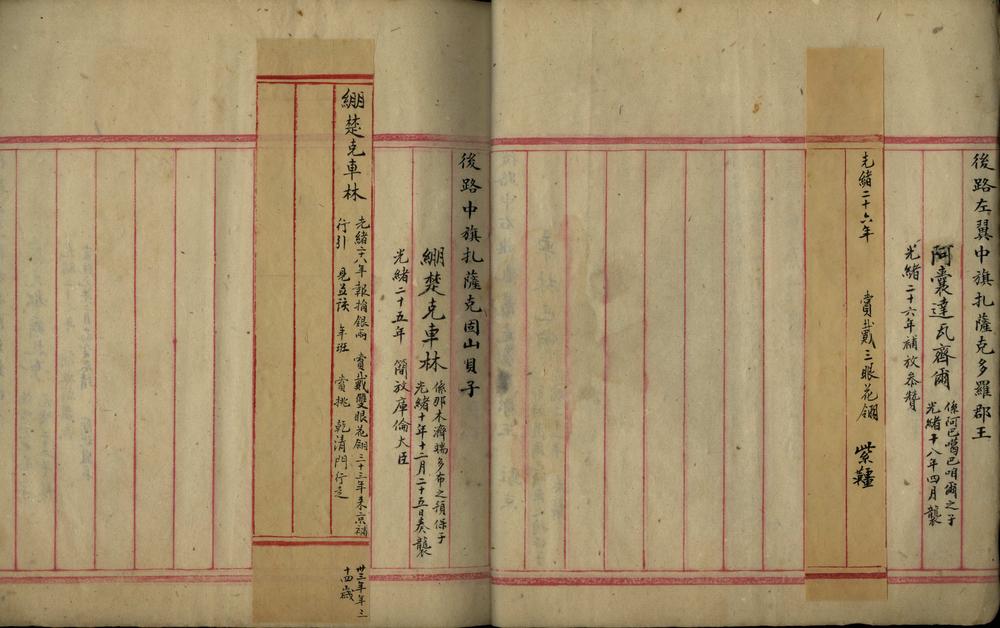 後路左翼中旗扎薩克多羅郡王
阿囊達瓦齊爾
係阿巴噶巴咱爾之子
光緒十八年四月襲
光緒二十六年補放叅贊
光緒二十六年 賞戴三眼花翎 紫韁
後路中旗扎薩克固山貝子
綳楚克車林
係那木濟端多布之預保子
光緒十年十二月二十五日奏襲
光緒二十五年 簡放庫倫大臣
綳楚克車林
光緒二十八年報捐銀兩 賞戴雙眼花翎三十三年来京補
行引 見並該 年班 賞挑 乾清門行走
卅三年年三
十四歲